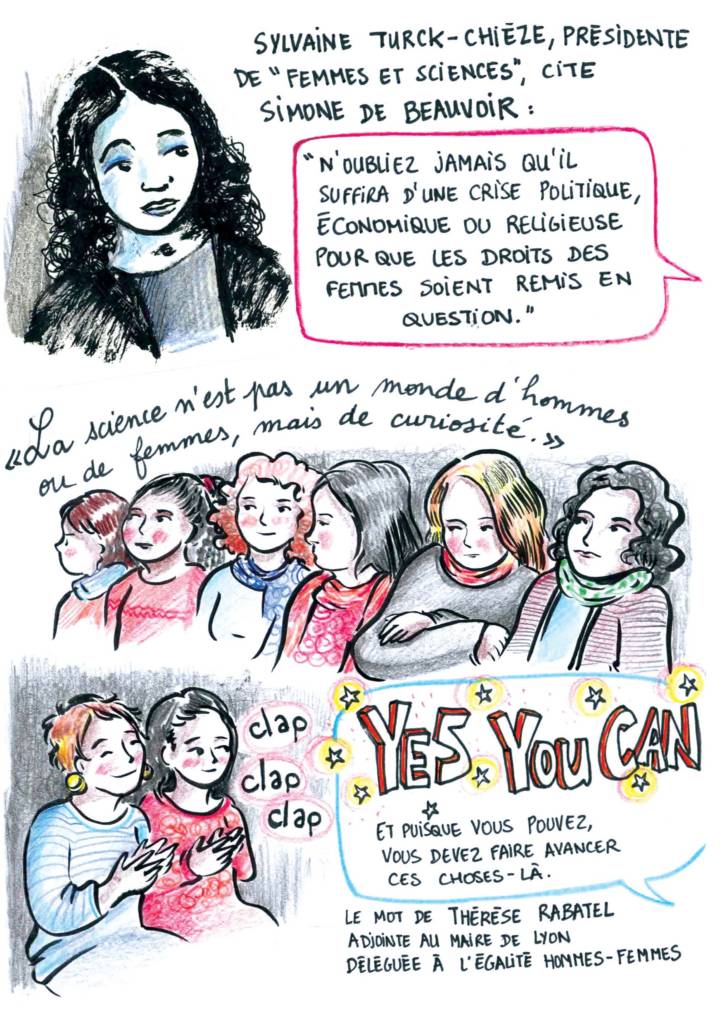 SYLVAINE TURCK-CHIÈZE, PRÉSIDENTE
DE "FEMMES ET SCIENCES", CITE
SIMONE DE BEAUVOIR :
"N'OUBLIEZ JAMAIS QU'IL
SUFFIRA D'UNE CRISE POLITIQUE,
ÉCONOMIQUE OU RELIGIEUSE
POUR QUE LES DROITS DES
FEMMES SOIENT REMIS EN
QUESTION."
«La science n'est pas un monde d'hommes
ou de femmes, mais de curiosité.»
clap
clap
clap
YES YOU CAN
ET PUISQUE VOUS POUVEZ,
VOUS DEVEZ FAIRE AVANCER
CES CHOSES-LÀ.
LE MOT DE THÉRÈSE RABATEL
ADJOINTE AU MAIRE DE LYON
DÉLÉGUÉE À L'ÉGALITÉ HOMMES-FEMMES